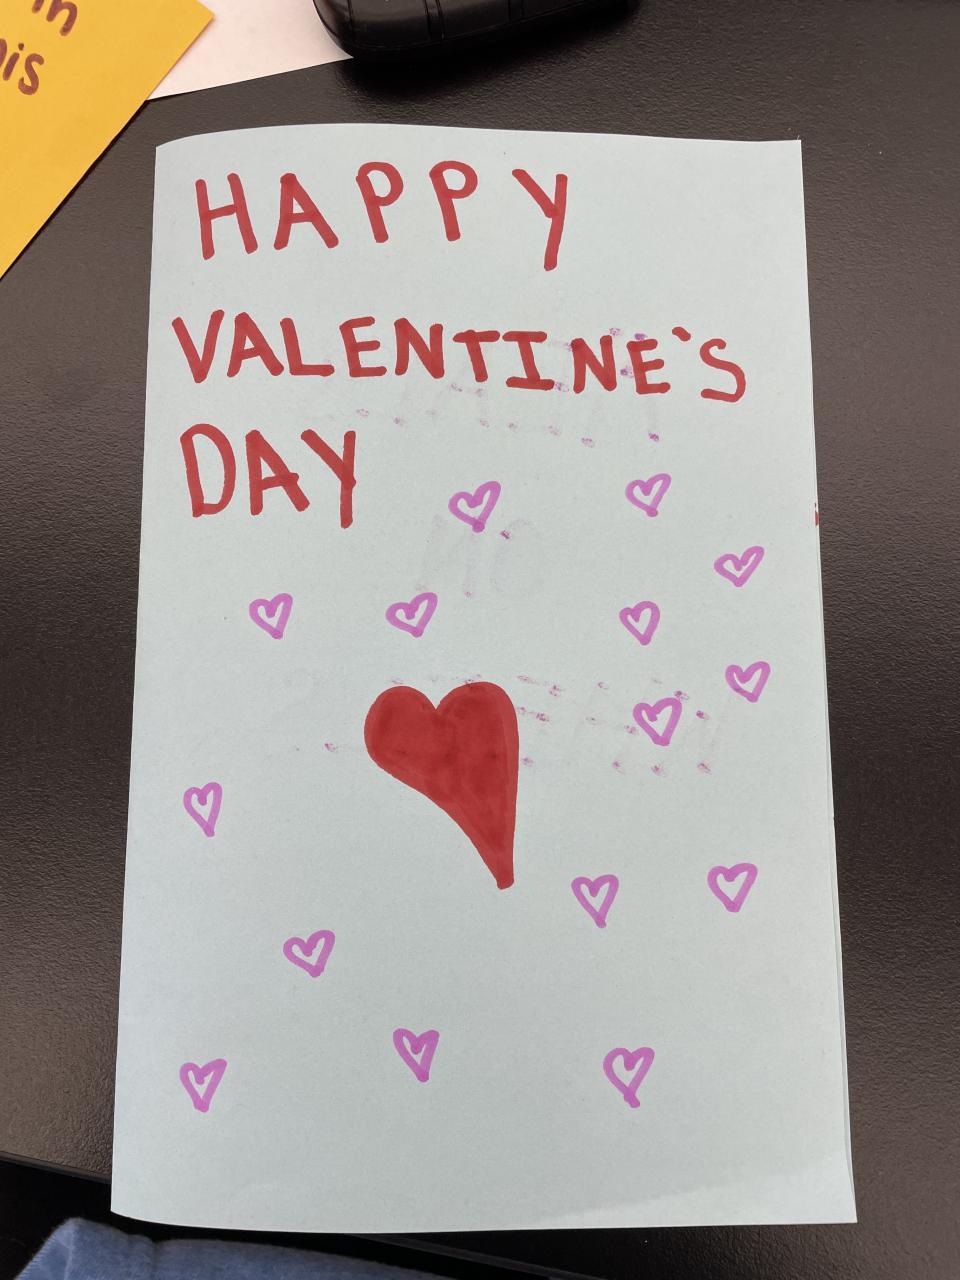 in
HAPPY
VALENTINE'S
DAY